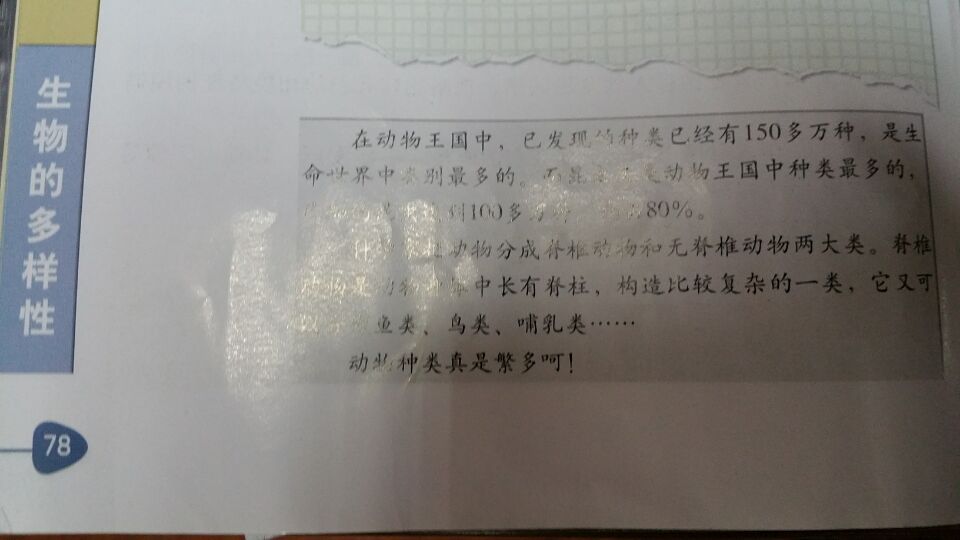 生物的多样性
在动物王国中，已发现的种类已经有150多万种，是生
命世界中类别最多的。而昆虫 动物王国中种类最多的，
到100多万种， 80%。
动物分成脊椎动物和无脊椎动物两大类。脊椎
动物是动物 中长有脊柱，构造比较复杂的一类，它又可
鱼类、鸟类、哺乳类……
动物种类真是繁多呵！
78